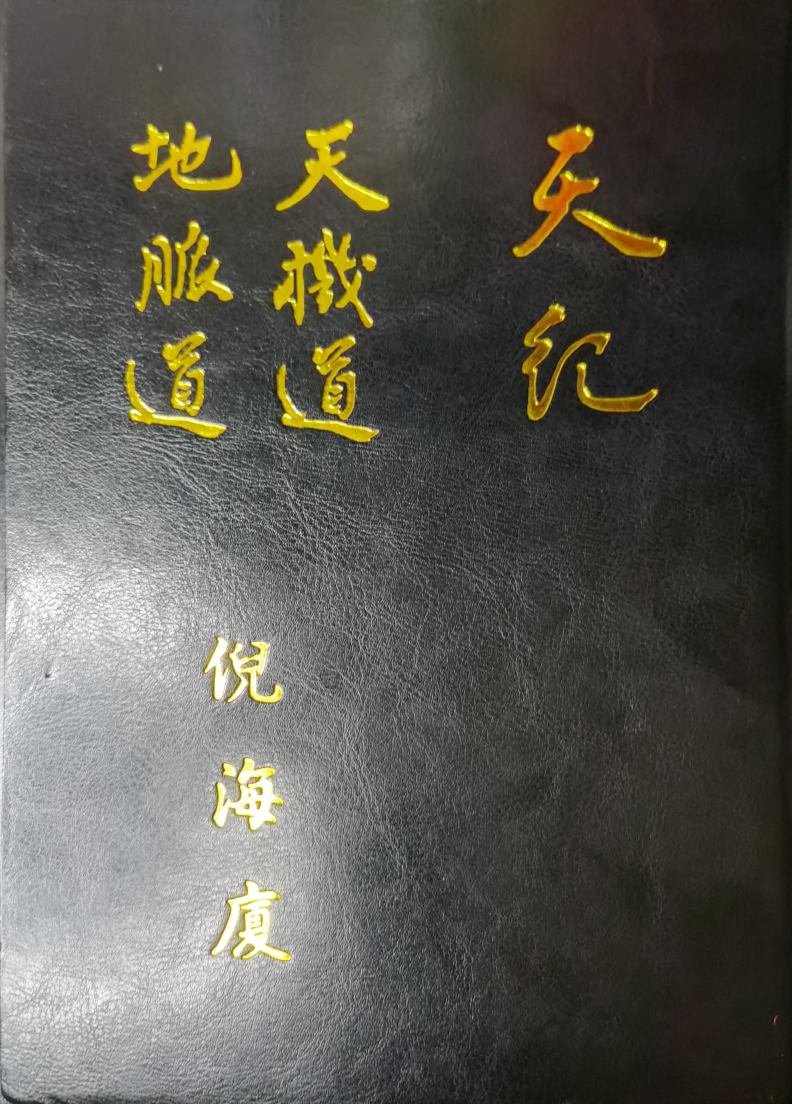 天纪
天機道
地脈道
倪海廈